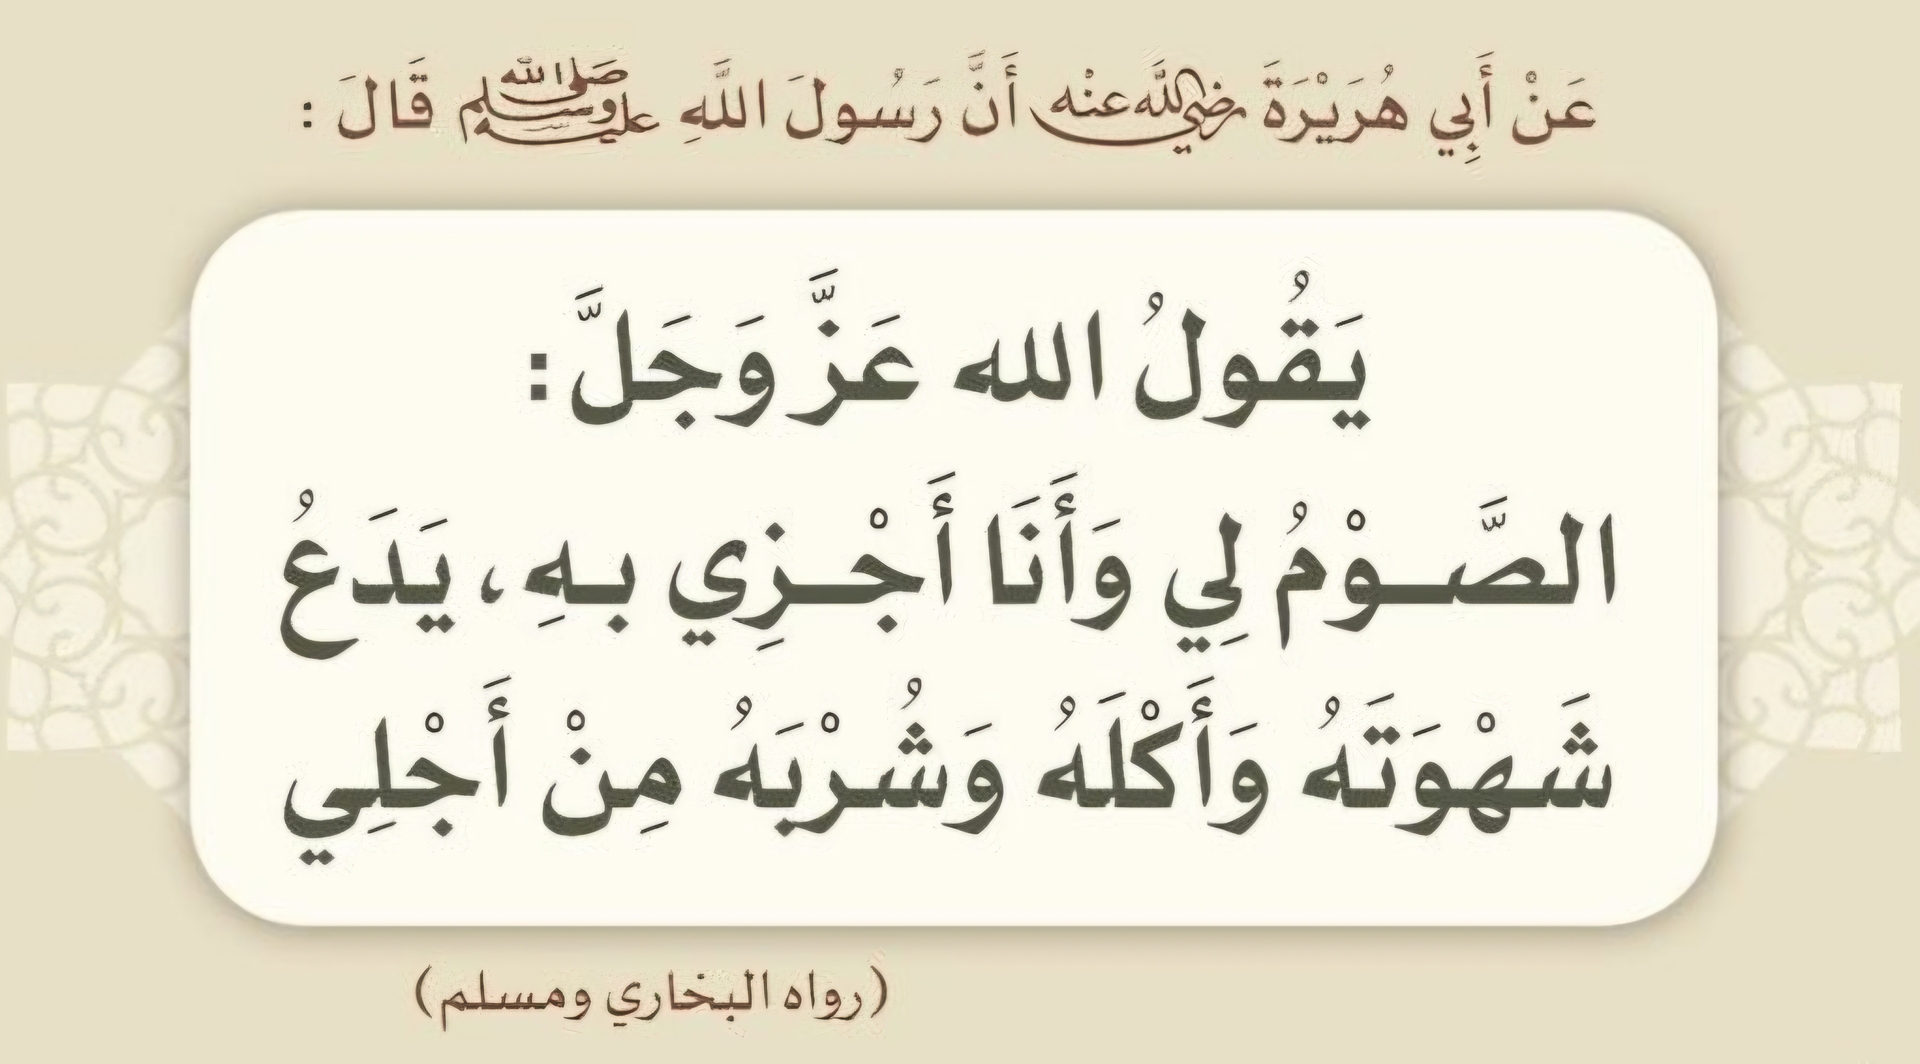 عَنْ أَبِي هُرَيْرَةَ رضي الله عنه أَنَّ رَسُولَ اللَّهِ صلى الله عليه وسلم قَالَ :
يَقُولُ الله عَزَّ وَجَلَّ :
الصَّوْمُ لِي وَأَنَا أَجْزِي بهِ ، يَدَعُ
شَهْوَتَهُ وَأَكْلَهُ وَشُرْبَهُ مِنْ أَجْلِي
(رواه البخاري ومسلم)